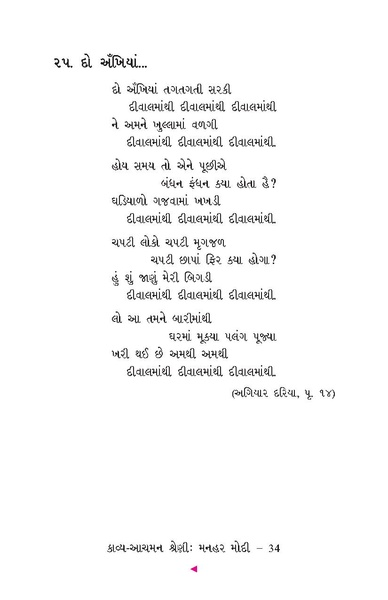 ૨૫. દો અઁખિયાં...
દો અઁખિયાં તગતગતી સરકી
દીવાલમાંથી દીવાલમાંથી દીવાલમાંથી
ને અમને ખુલ્લામાં વળગી
દીવાલમાંથી દીવાલમાંથી દીવાલમાંથી.
હોય સમય તો એને પૂછીએ
બંધન ફંધન ક્યા હોતા હૈ?
ઘડિયાળો ગજવામાં ખખડી
દીવાલમાંથી દીવાલમાંથી દીવાલમાંથી.
ચપટી લોકો ચપટી મૃગજળ
ચપટી છાપાં ફિર ક્યા હોગા?
હું શું જાણું મેરી બિગડી
દીવાલમાંથી દીવાલમાંથી દીવાલમાંથી.
લો આ તમને બારીમાંથી
ઘરમાં મૂક્યા પલંગ પૂજ્યા
ખરી થઈ છે અમથી અમથી
દીવાલમાંથી દીવાલમાંથી દીવાલમાંથી.
(અગિયાર દરિયા, પૃ. ૧૪)
કાવ્ય-આચમન શ્રેણીઃ મનહર મોદી – 34